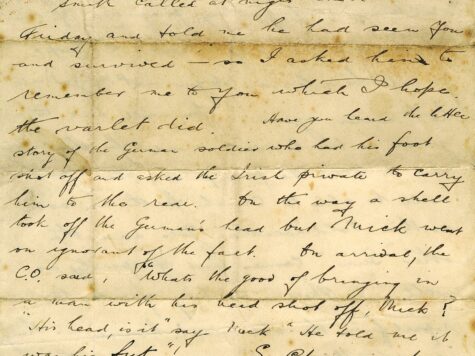 Smith called at
Friday and told me he had seen you
and survived – so I asked him to
remember me to you which I hope
the varlet did. Have you heard the little
story of the German soldier who had his foot
shot off and asked the Irish private to carry
him to the rear. On the way a shell
took off the German's head but Mick went
on ignorant of the fact. On arrival, the
C.O. said, "Whats the good of bringing in
a man with his head shot off, Mick?
"His head, is it" say Mick "He told me it
was his foot"!